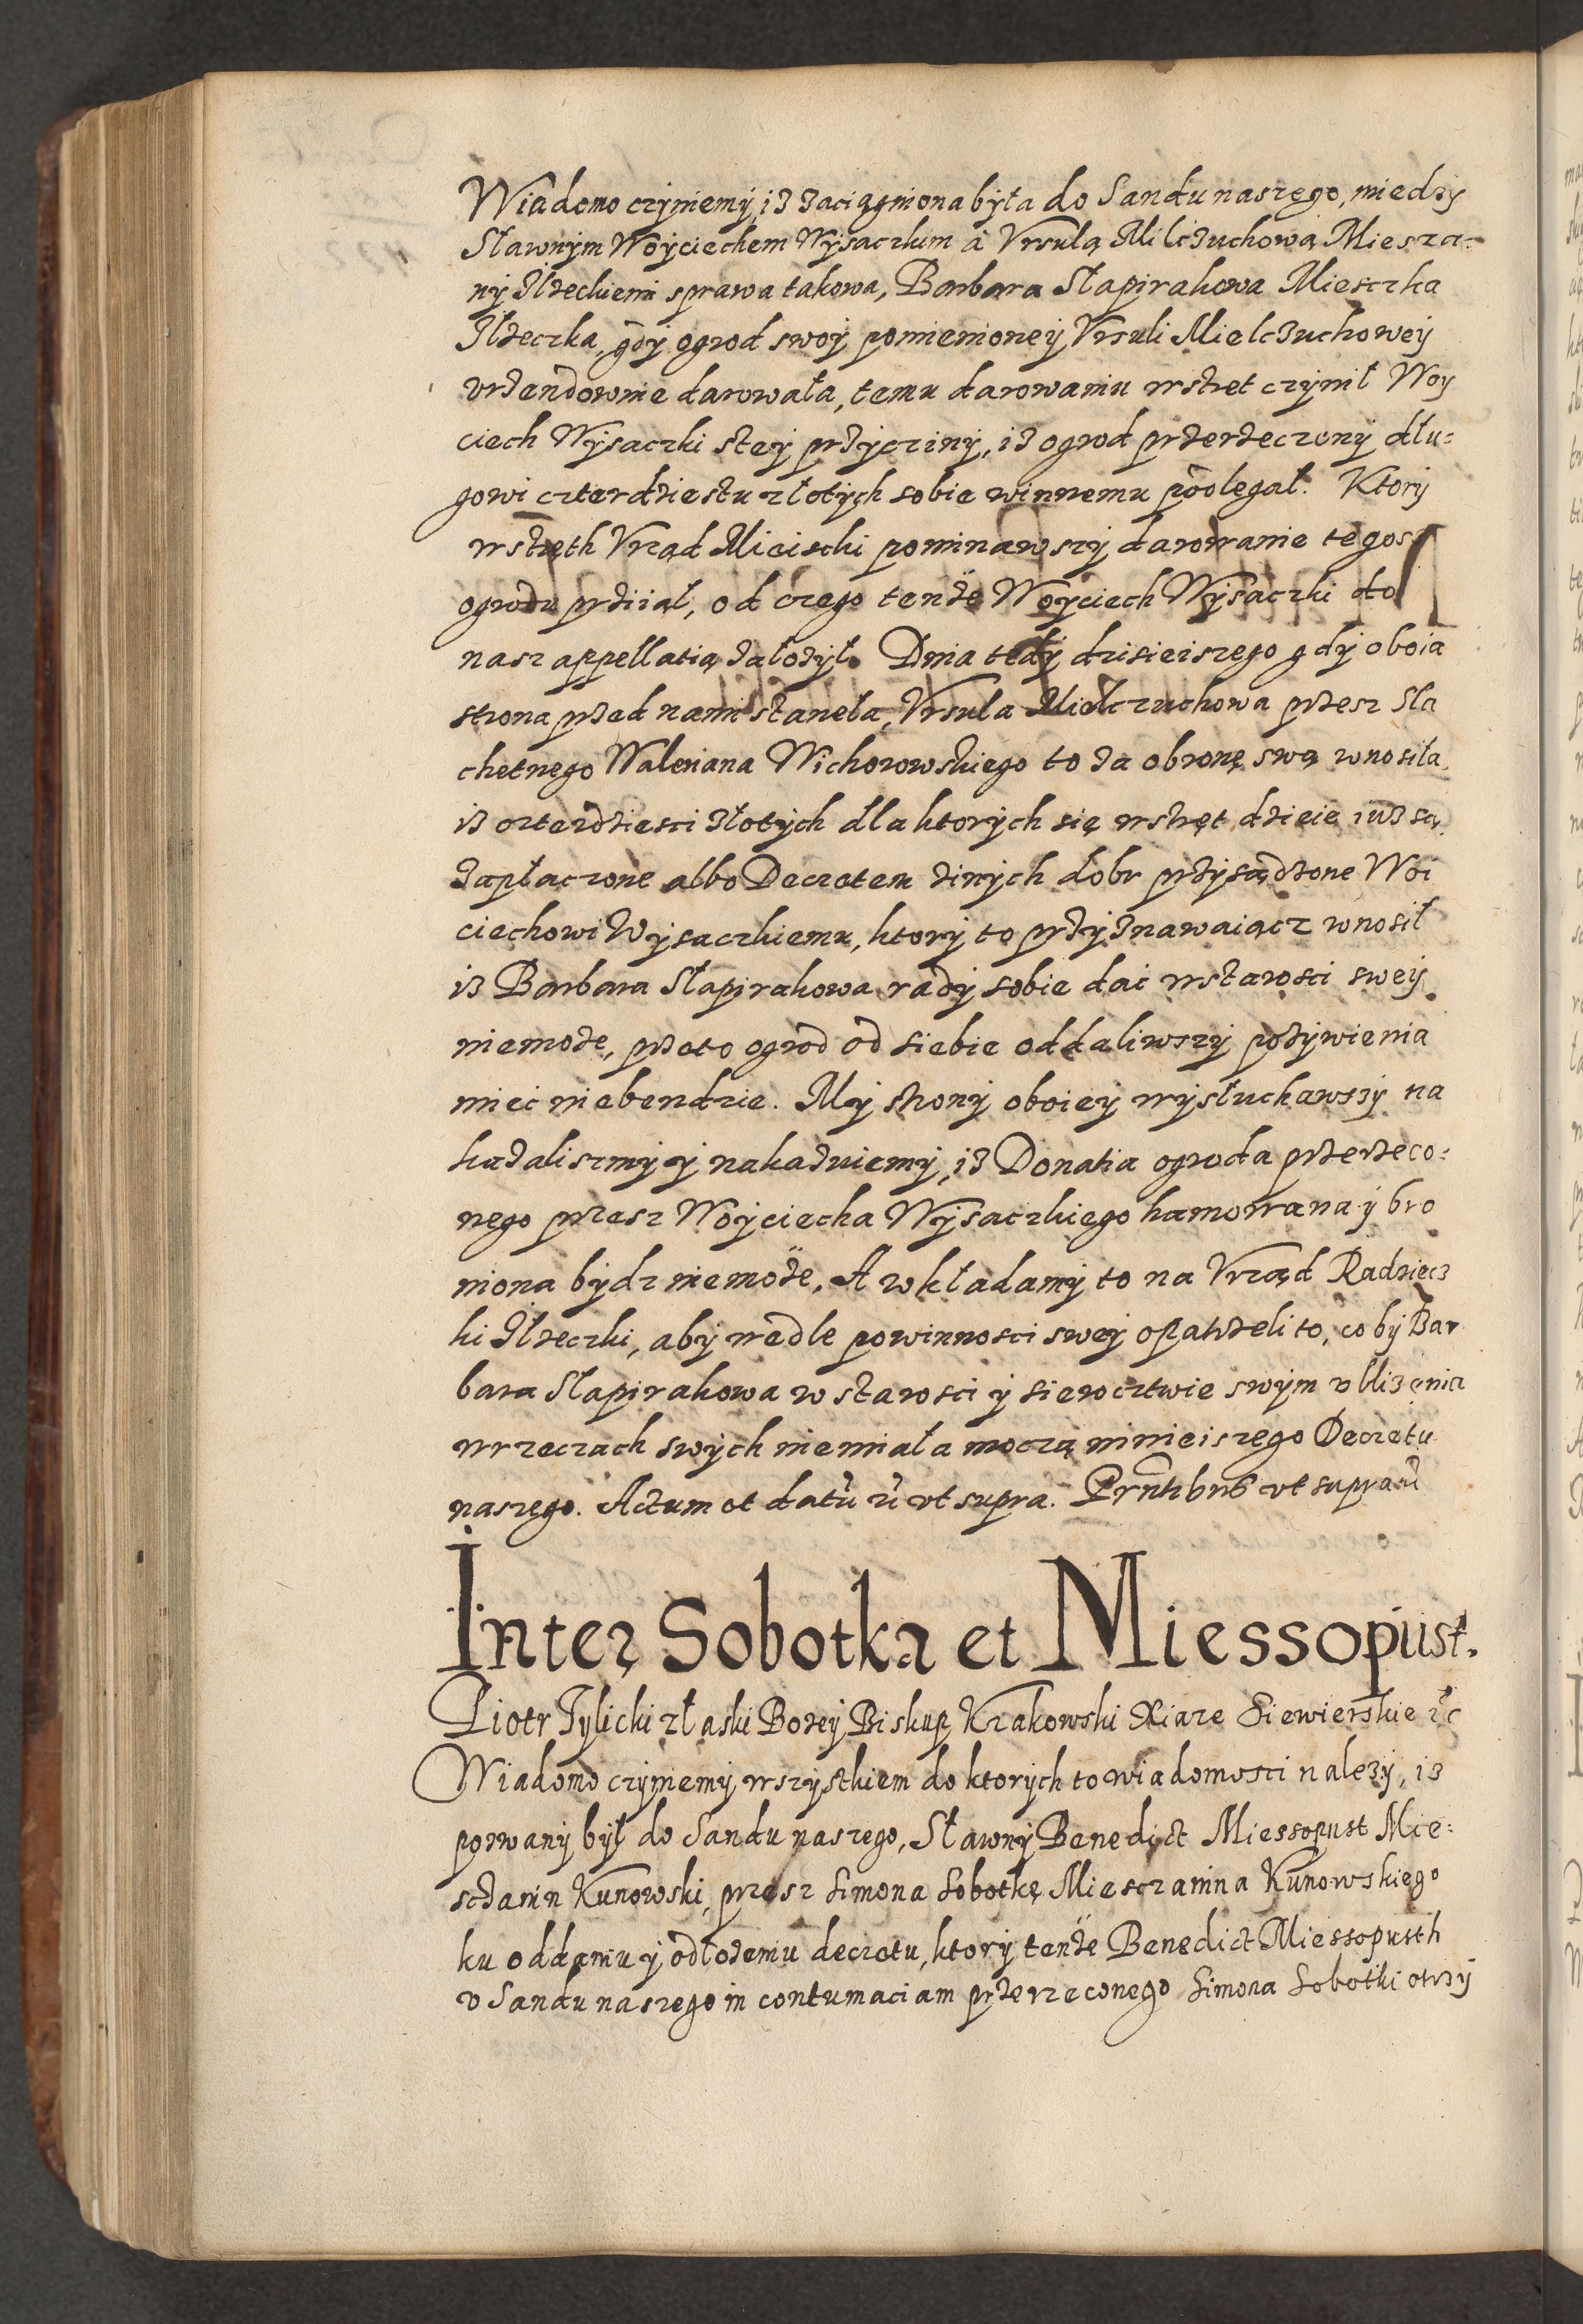 Wiadomo czyniemy, iz zaciągniona była do Sandu naszego, miedzy
Sławnym Woyciechem Wysaczkim à Vrsulą Milczuchową Miescza-
ny Ilzeckiemi sprawa takowa, Barbara Słapirakowa Miesczka
Ilzeczka, gdy ogrod swoy pomienioney Vrsuli Mielczuchowey
vrzendownie darowała, temu darowaniu wstręt czynił Woy
ciech Wysaczki stey przyczyny, iz ogrod przerzeczony dłu-
gowi czterdziestu złotych sobie winnemu podlegał. Ktory
wstręth Vrząd Mieiscki pominąwszy darowanie tegosz
ogrodu prziiął, od czego tenże Woyciech Wysaczki do
nasz appellatią założył. Dnia tedy dzisieiszego gdy oboia
strona przed nami stanęła, Vrsula Mielczuchowa przesz Sla
chetnego Waleriana Wichorowskiego to za obronę swą wnosiła
iz czterdziesci złotych dla ktorych się wstręt dzieie iuz są
zapłaczone albo Decretem zinych dobr przysądzone Woi
ciechowi Wysaczkiemu, ktory to przyznawaiącz wnosił
iz Barbara Słapirakowa rady sobie dać wstarosci swey
niemoze, przoto ogrod od siebie oddaliwszy pożywienia
mieć niebendzie. My strony oboiey wysłuchawszy na
kazaliszmy y nakazuiemy, iz Donatia ogroda przerzeco-
nego przesz Woyciecha Wysaczkiego hamowana y bro
niona bydz niemoże, A wkładamy to na Vrząd Radziecz
ki Ilzeczki, aby wedle powinnosci swey opatrzeli to, coby Bar
bara Słapirakowa w starosci y sieroctwie swym vbliżenia
w rzeczach swych niemiała moczą ninieiszego Decretu
naszego. Actum et datū ū vt supra. Prñtibus vt supra ū
Inter Sobotka et Miessopust.
Piotr Tylicki z łaski Bozey Biskup Krakowski Xiaze Siewierskie etc
Wiadomo czyniemy wszystkiem do ktorych to wiadomosci nalezy, iz
pozwany był do Sandu naszego, Sławny Benedict Miessopust Mie-
sczanin Kunowski, przesz Simona Sobotkę Miesczanina Kunowskiego
ku oddaniu y odłożeniu decretu, ktory tenże Benedict Miessopusth
v Sandu naszego in contumaciam przerzeconego Simona Sobotki otrzy